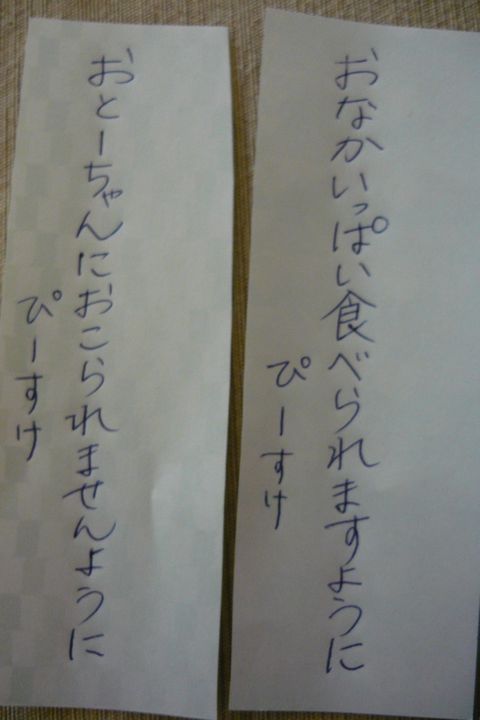 おなかいっぱい食べられますように
ぴーすけ
おとーちゃんにおこられませんように
ぴーすけ